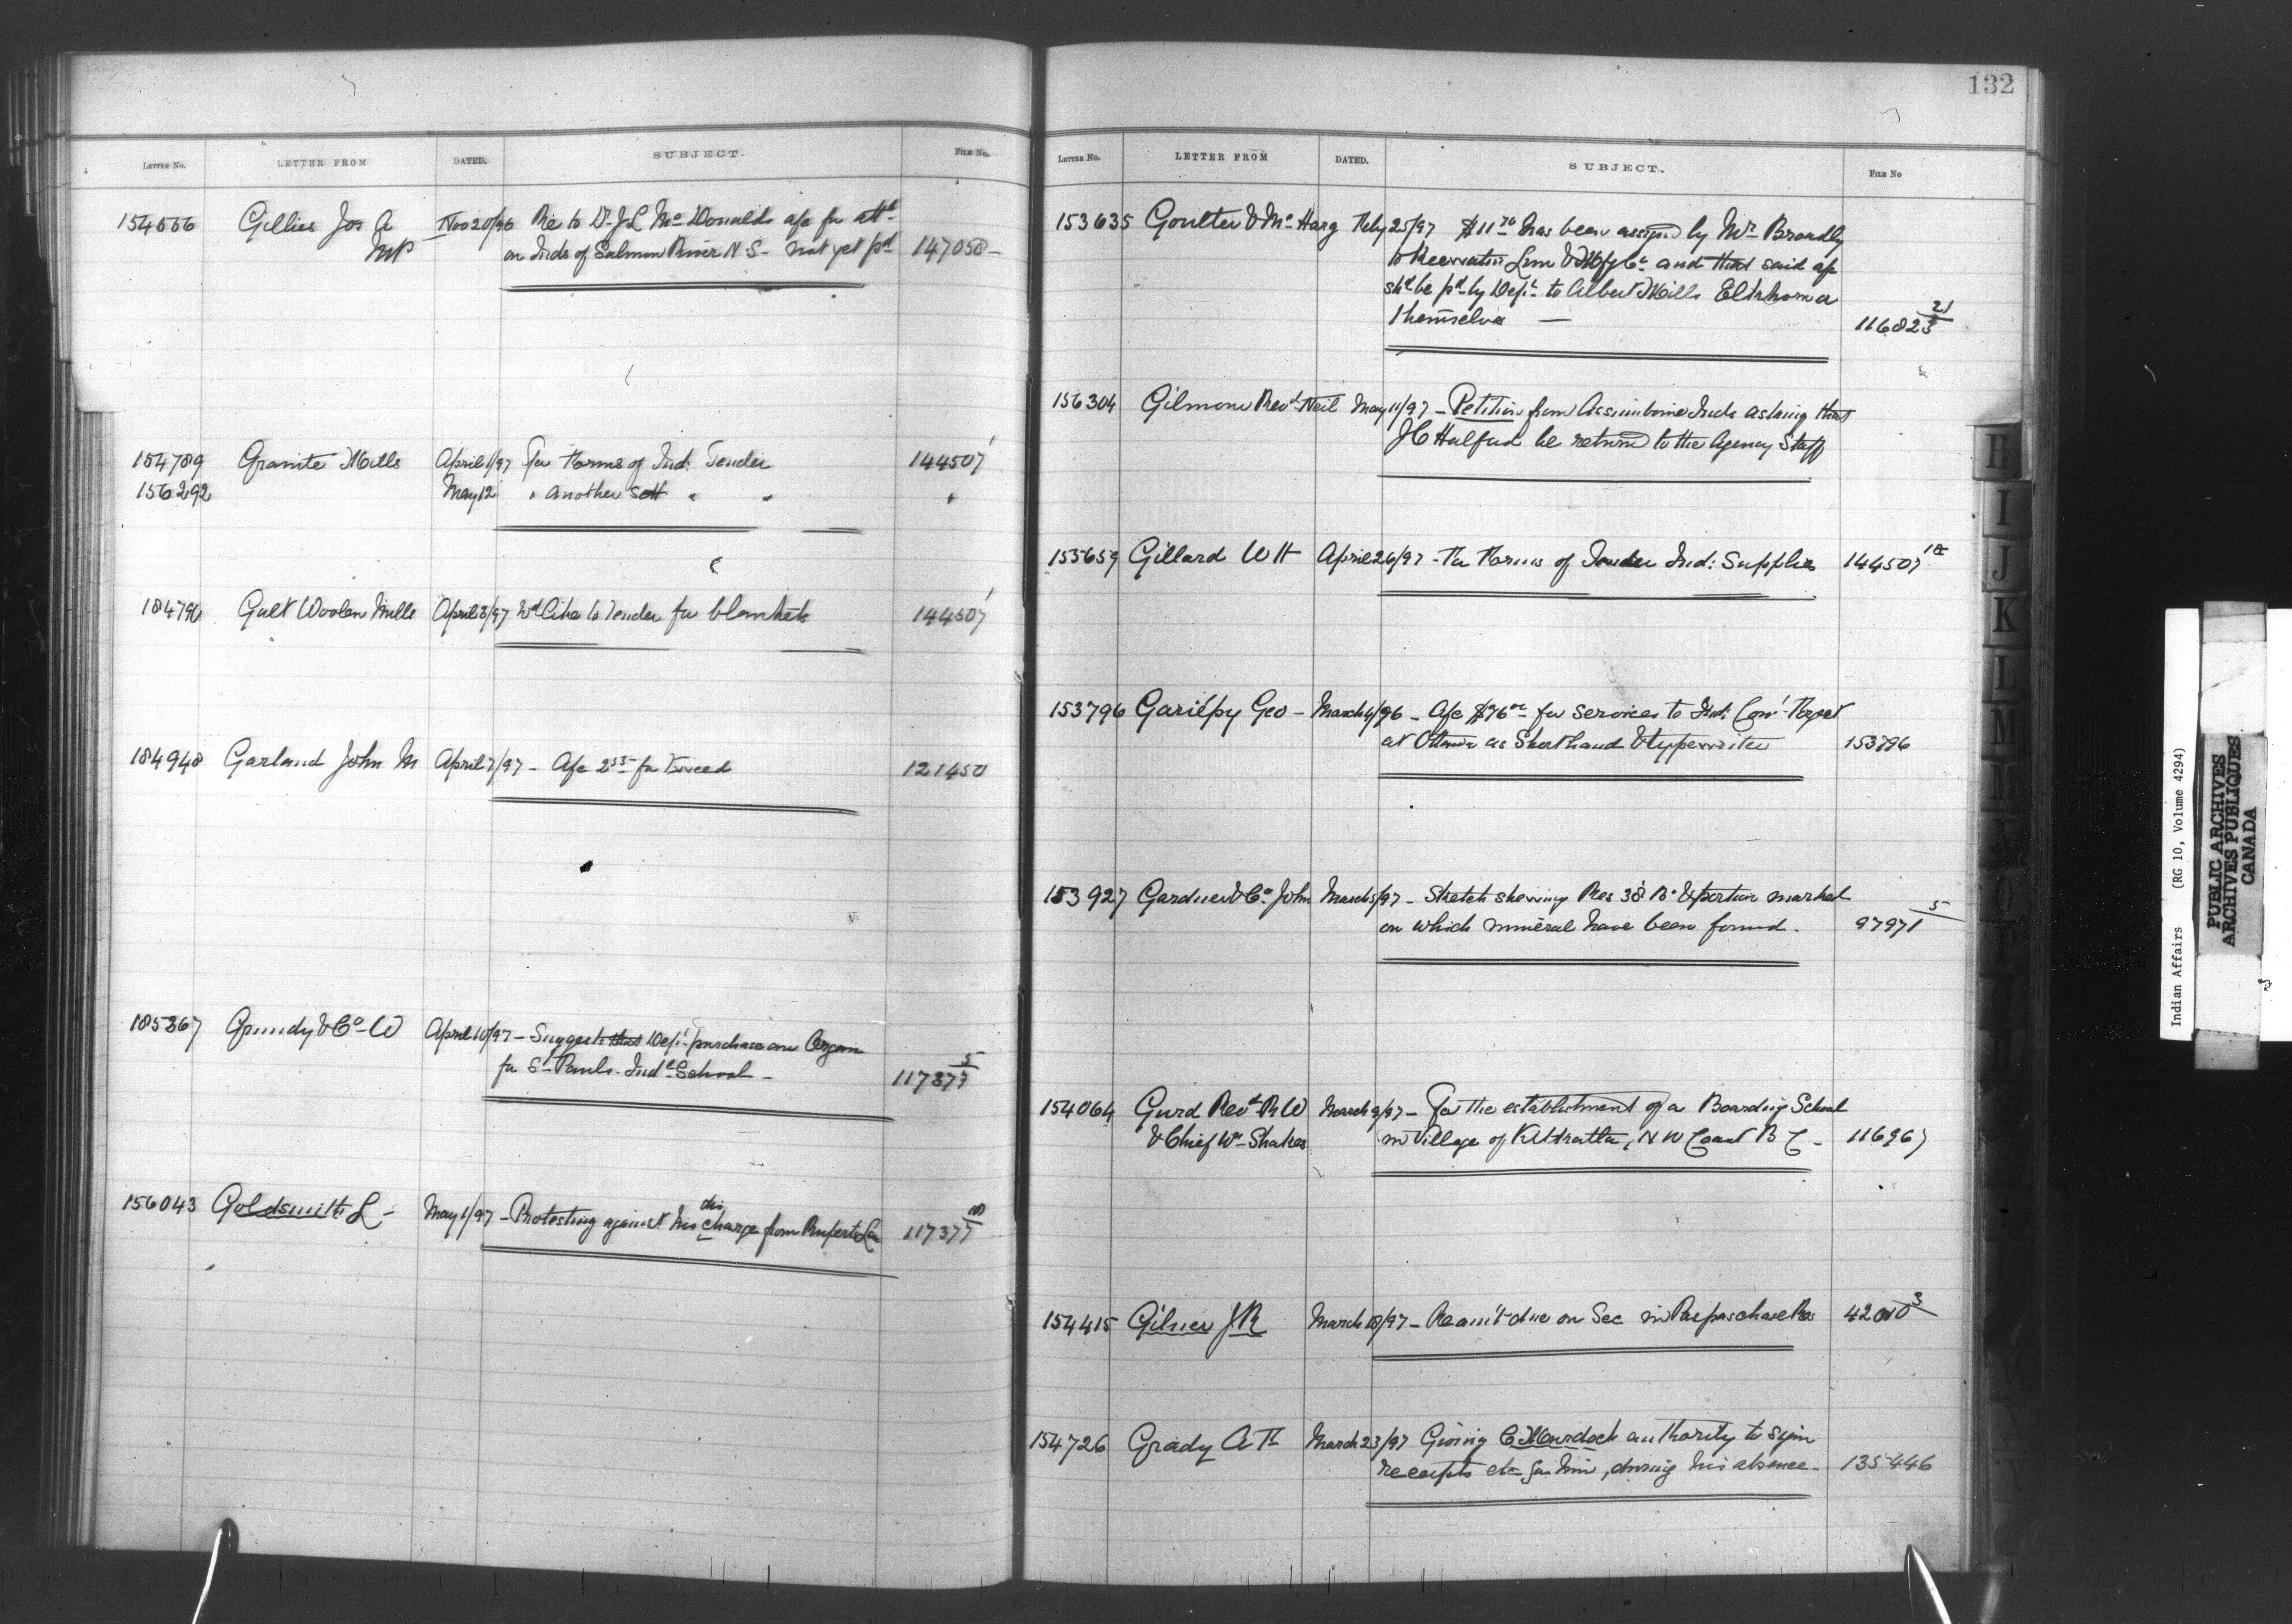 132
LETTER NO. LETTER FROM DATED. SUBJECT. FILE NO.
154556 Gillies Jos A Nov 20/96 Re to Dr J L McDonalds a/c for attce
MP on Inds of Salmon River N.S - not yet pd 147058 -
154789 Granite Mills April 1/97 For Forms of Ind: Tender 144507 1
156292 May 12 " another sett " " "
154796 Galt Woolen Mills April 3/97 Wd like to Tender for blankets 144507 1
154948 Garland John M April 7/97 - A/c 2.55 for Tweed 121450
155367 Grundy & Co W April 10/97 - Suggests that Dept purchase an Organ
for St Pauls Indl School - 117377 5
156043 Goldsmith L - May 1/97 - Protesting against his discharge from Ruperts Ld 117377
LETTER NO. LETTER FROM DATED. SUBJECT. FILE NO
153635 Goulter & McHarg Feby 25/97 $11.76 has been assigned by Mr Broadly
to Recreation & Mfg Co and that said a/c
shd be pd by Dept to Albert Mills Elkhorn or
themselves — 116823 21
156304 Gilmour Revd Neil May 11/97 - Petition from Assiniboine Inds asking that
J C Halford be returned to the Agency Staff
155659 Gillard W H April 26/97 - For Forms of Tender Ind: Supplies 144507 18
153796 Gariépy Geo - March 4/96 - A/c $76.00 for services to Ind:
at Ottawa as Shorthand & typewriter 153796
153927 Gardner & Co John March 5/97 - Sketch shewing Res 38 B & portion marked
on which mineral have been found. 97971 5
154064 Gurd Revd R W March 9/97 - For the establishment of a Boarding School
& Chief Wm Shakes in Village of Kitkatla, N W Coast B C - 116967
154415 Gilner J R March 18/97 - Re amt due on Sec in Paspaschase Res 42010 3
154726 Grady A March 23/97 Giving C Murdoch authority to sign
receipts etc for him, during his absence - 135446
H
I
J
K
L
M
Indian Affairs (RG 10, Volume 4294)
PUBLIC ARCHIVES
ARCHIVES PUBLIQUES
CANADA